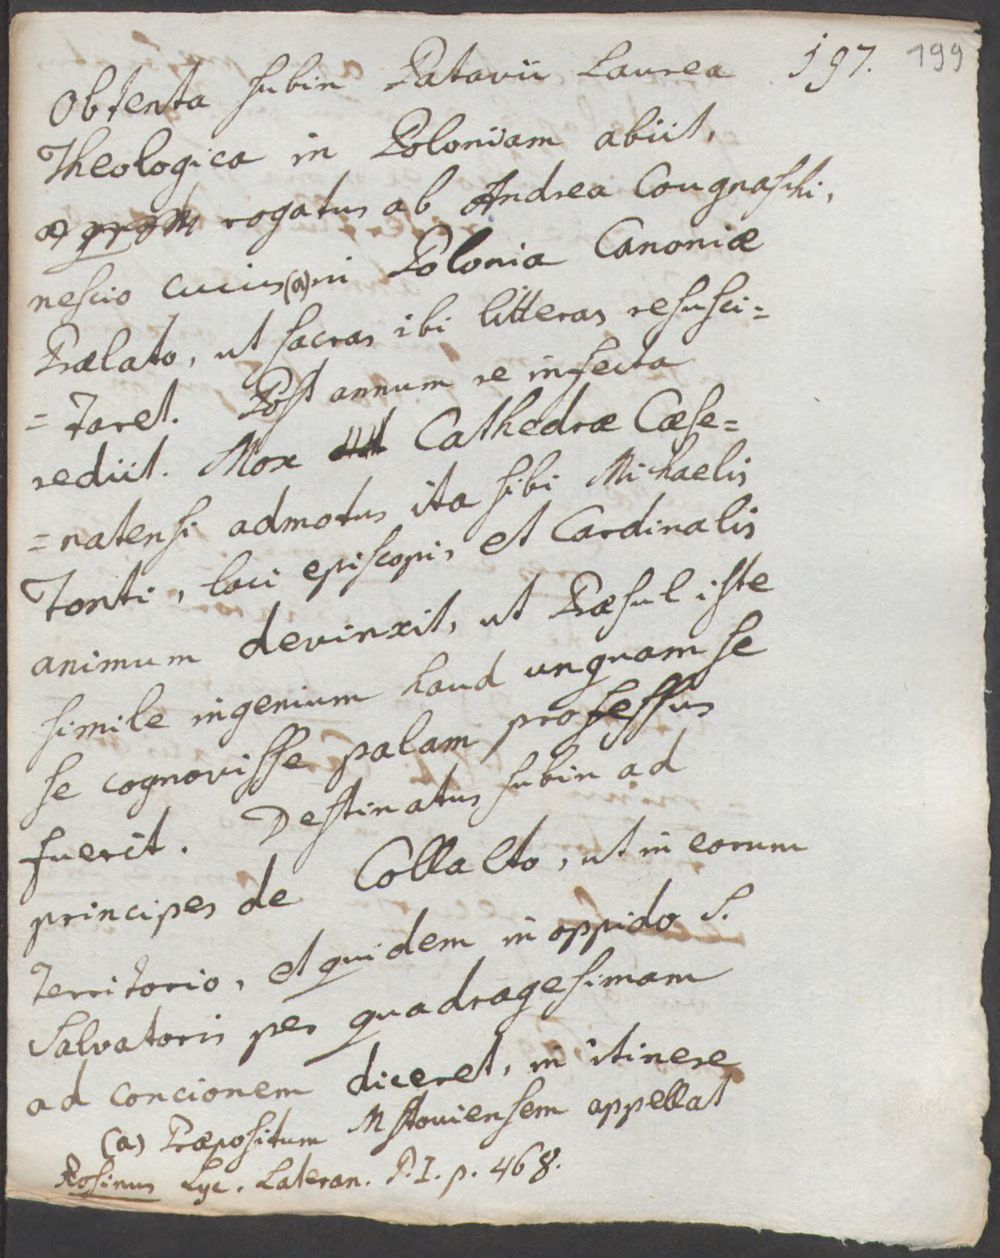 197. 199
Obtenta subin Patavii Laurea
Theologica in Poloniam abiit,
rogatus ab Andrea Cougnaschi,
nescio cuius (a) in Polonia Canoniæ
Prælato, ut sacras ibi litteras resusci=
=taret. Post annum re infecta
rediit. Mox Cathedræ Cæse=
=natensi admotus ita sibi Michaelis
Tonti, loci episcopi, et Cardinalis
animum devinxit, ut Præsul iste
simile ingenium haud unquam se
se cognovisse palam professus
fuerit. Destinatus subin ad
principes de Collalto, ut in eorum
territorio, et quidem in oppido S.
Salvatoris per quadragesimam
ad concionem diceret, in itinere
(a) Præpositum Mstoviensem appellat
Rosinus Lyc. Lateran. P. I. p. 468.